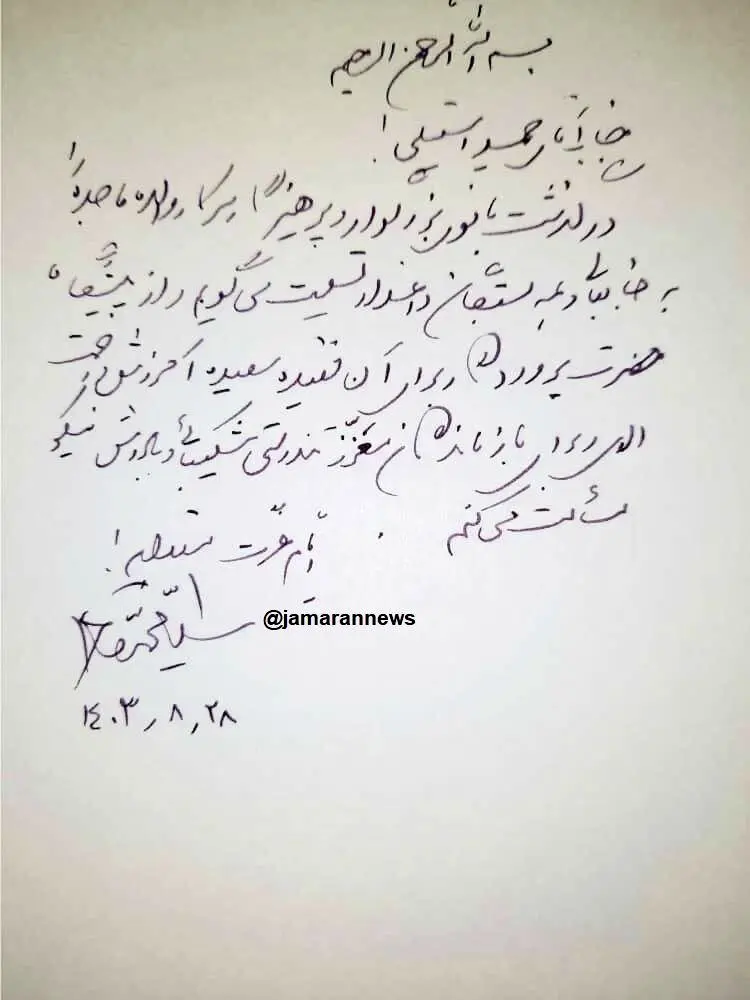 بسم الله الرحمن الرحیم
جناب آقای حمید استیلی!
درگذشت بانوی بزرگوار و پرهیزگار سرکار والده ماجده را
به جنابعالی و همه بستگان داغدار تسلیت می گویم و از پیشگاه
حضرت پروردگار برای آن فقیده سعیده آمرزش و رحمت
الهی و برای بازماندگان معزّز تندرستی شکیبائی و پاداش نیکو
مسئلت می کنم
ایام عزت مستدام!
سید محمد خاتمی
@jamarannews
۱۴۰۳/۸/۲۸